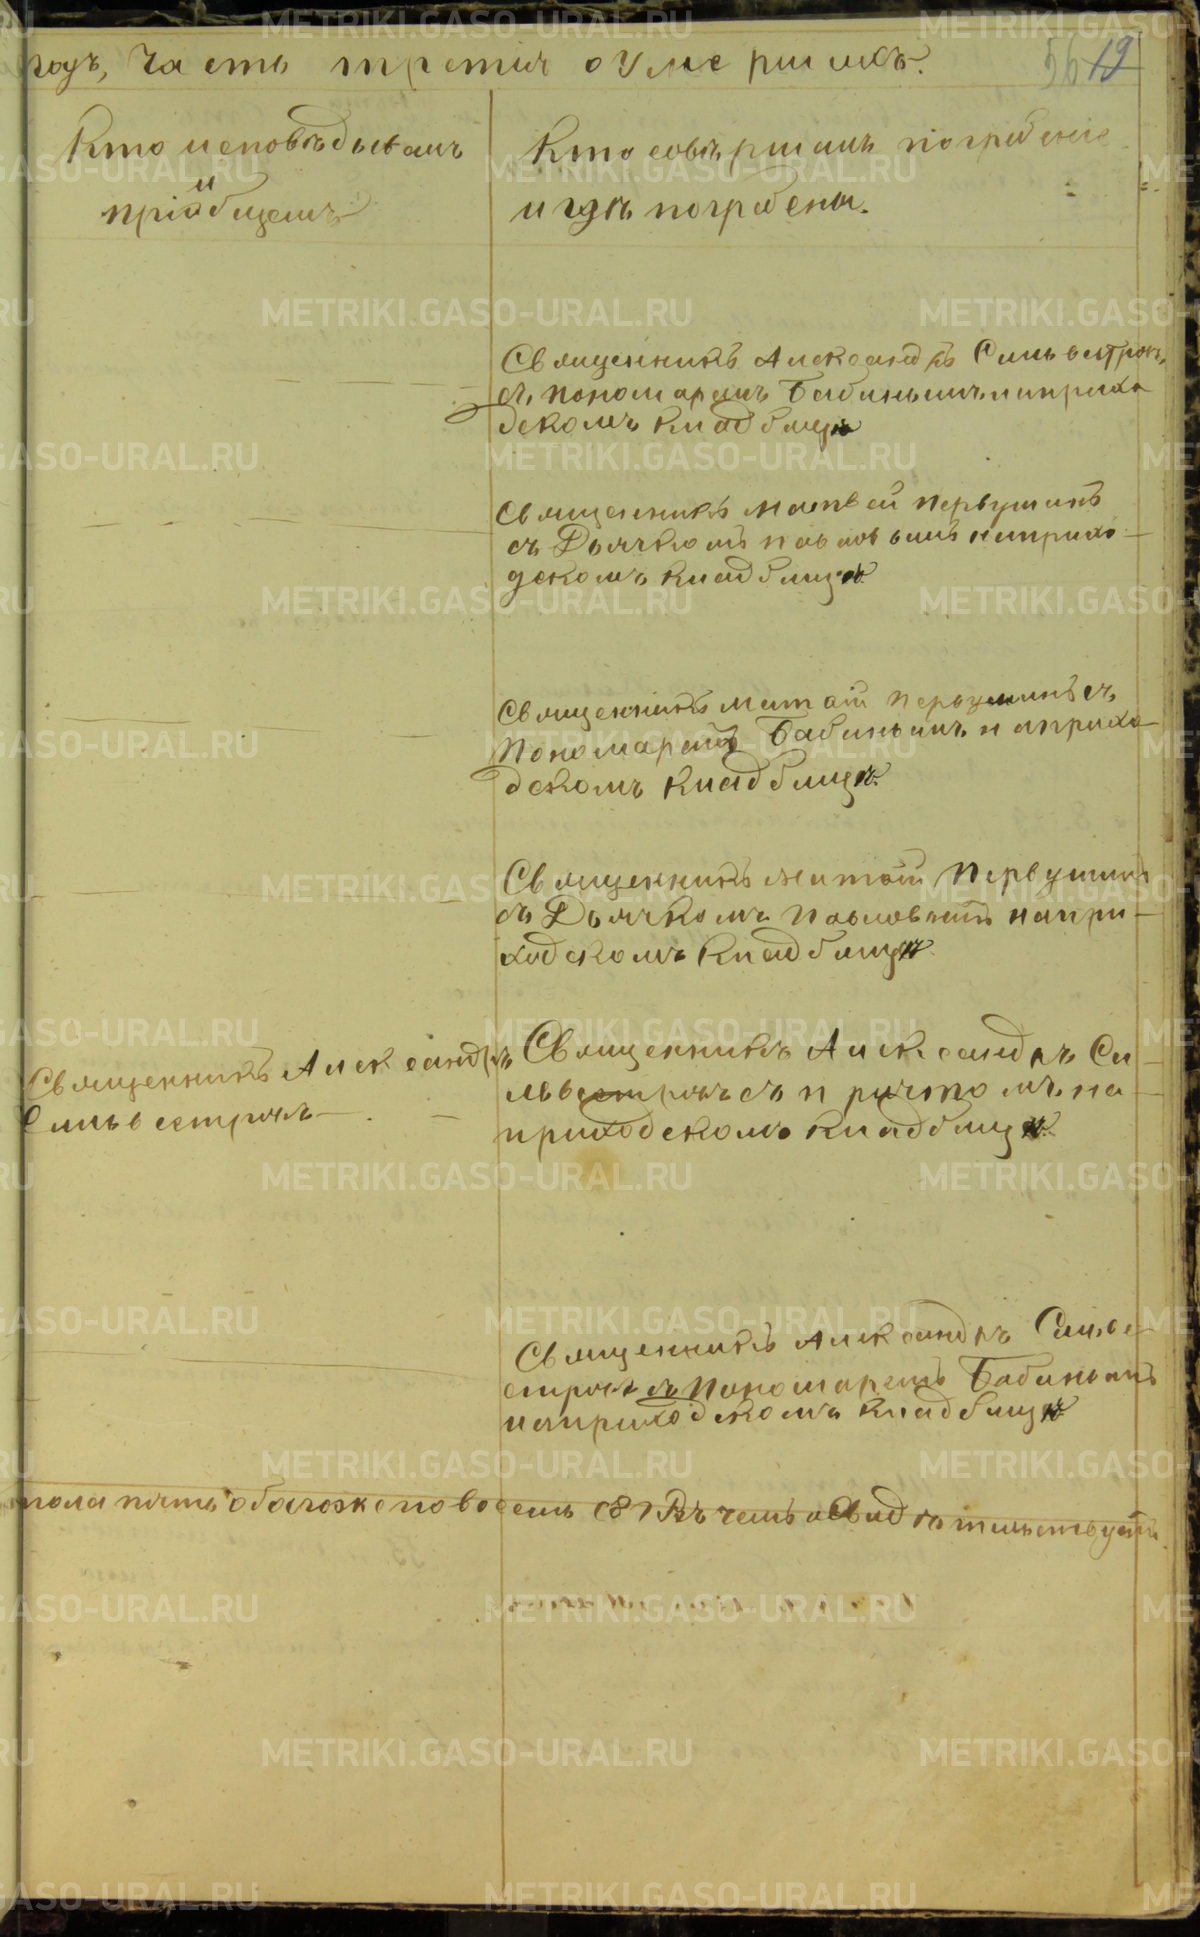 годъ, Часть третiя о Умершихъ.
56 19
Кто исповѣдывалъ
и
прiобщалъ
Кто совѣршалъ погребенiе
и гдѣ погребены.
Священникъ Александръ Сильвестровъ
съ пономаремъ Бабинымъ наприхо
дскомъ Кладбищѣ
Священникъ Матвей Первушинъ
съ Дьячкомъ Павловымъ наприхо-
дскомъ Кладбищѣ
Священникъ Матвѣй Первушинъ съ
Пономаремъ Бабинымъ наприхо-
дскомъ Кладбищѣ.
Священникъ Матвѣй Первушинъ
съ Дьячкомъ Павловымъ напри-
ходскомъ Кладбищѣ.
Священникъ Александръ
Сильвестровъ
Священникъ Александръ Си-
львестровъ съ причтомъ на
приходскомъ Кладбищѣ.
Священникъ Александръ Сильве-
стровъ съ Пономаремъ Бабинымъ
наприходскомъ Кладбищѣ
пола пять обоегоже пола восемь (8) Въ чемъ и Свидѣтельствуемъ.
METRIKI.GASO-URAL.RU